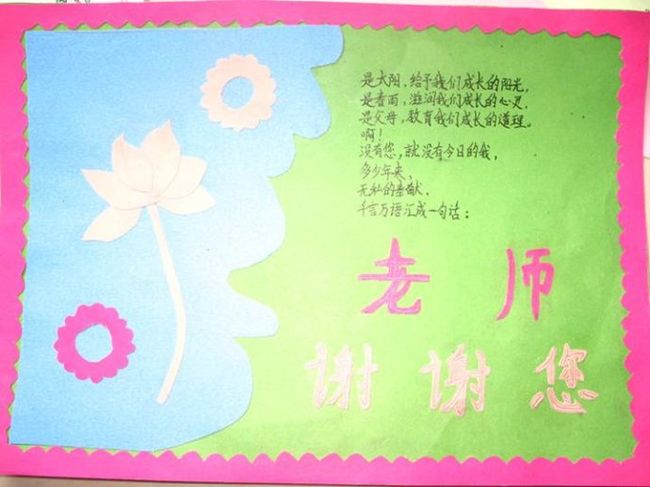 是太阳，给予我们成长的阳光，
是春雨，滋润我们成长的心灵，
是父母，教育我们成长的道理。
啊！
没有您，就没有今日的我，
多少年来，
无私的奉献，
千言万语汇成一句话：
老师
谢谢您